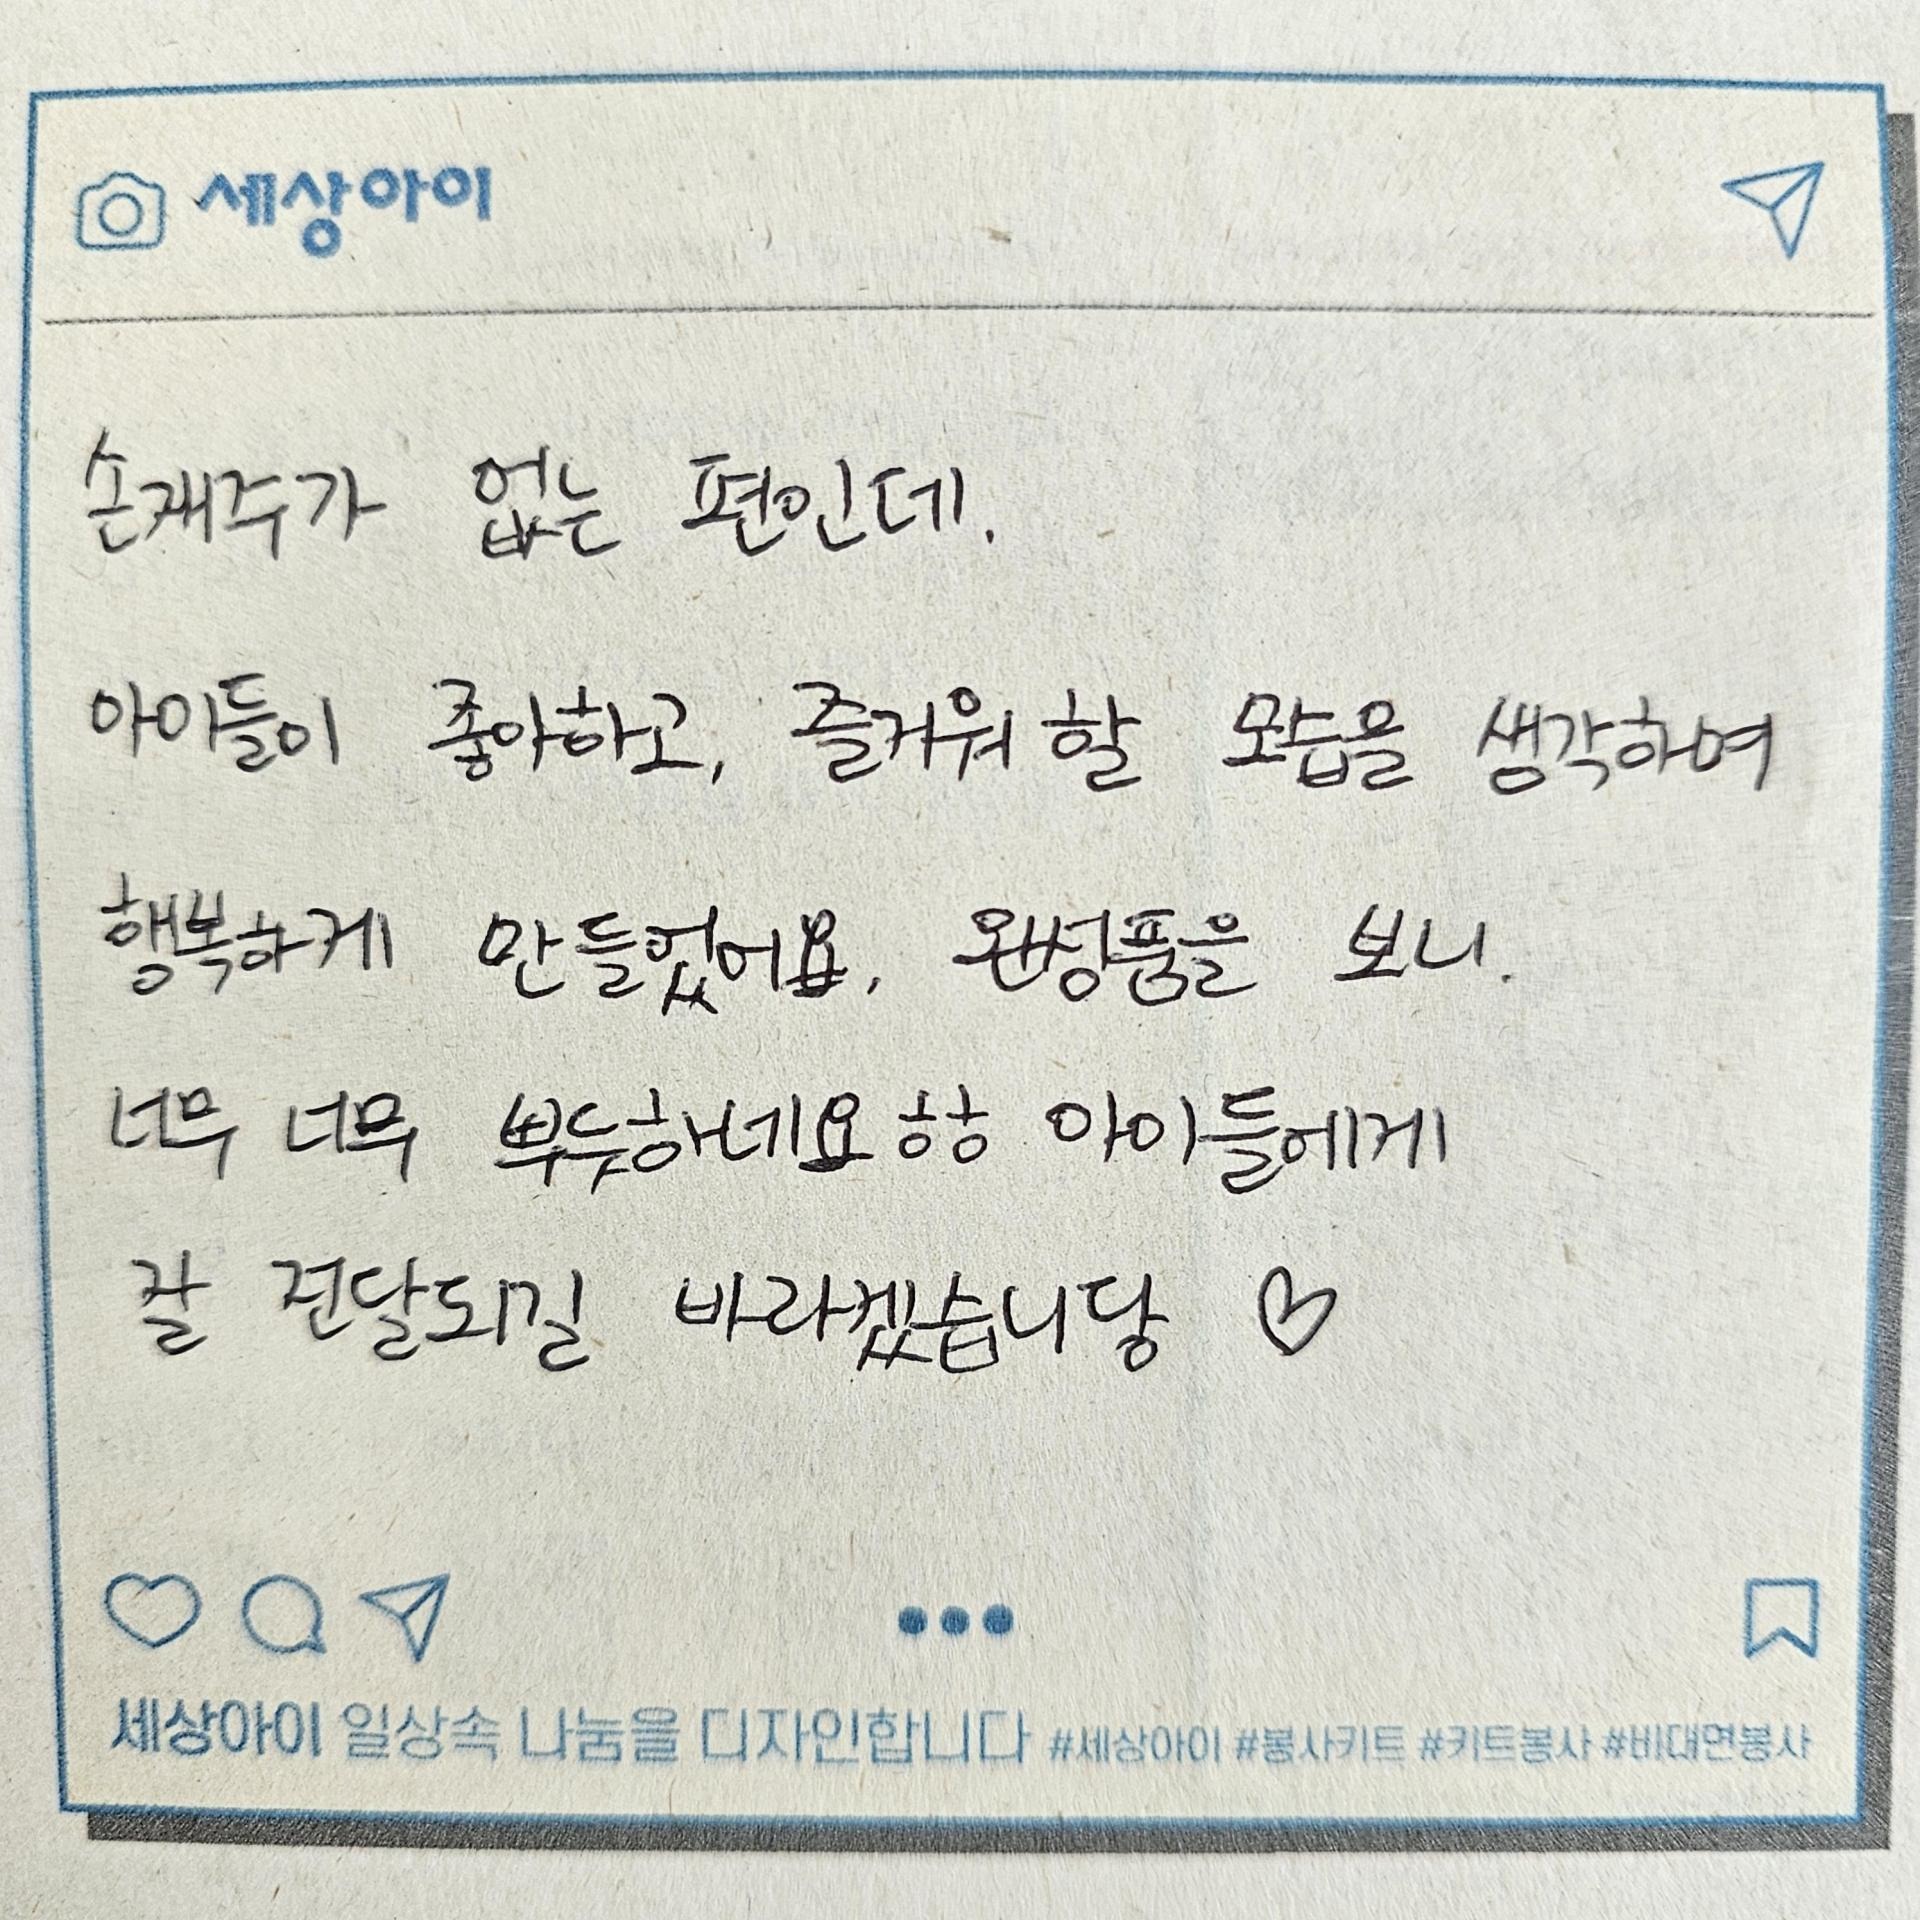 세상아이
손재주가 없는 편인데.
아이들이 좋아하고, 즐거워 할 모습을 생각하여
행복하게 만들었어요. 완성품을 보니.
너무 너무 뿌듯하네요 ㅎㅎ 아이들에게
잘 전달되길 바라겠습니당 ♡
세상아이 일상속 나눔을 디자인합니다 #세상아이 #봉사키트 #키트봉사 #비대면봉사